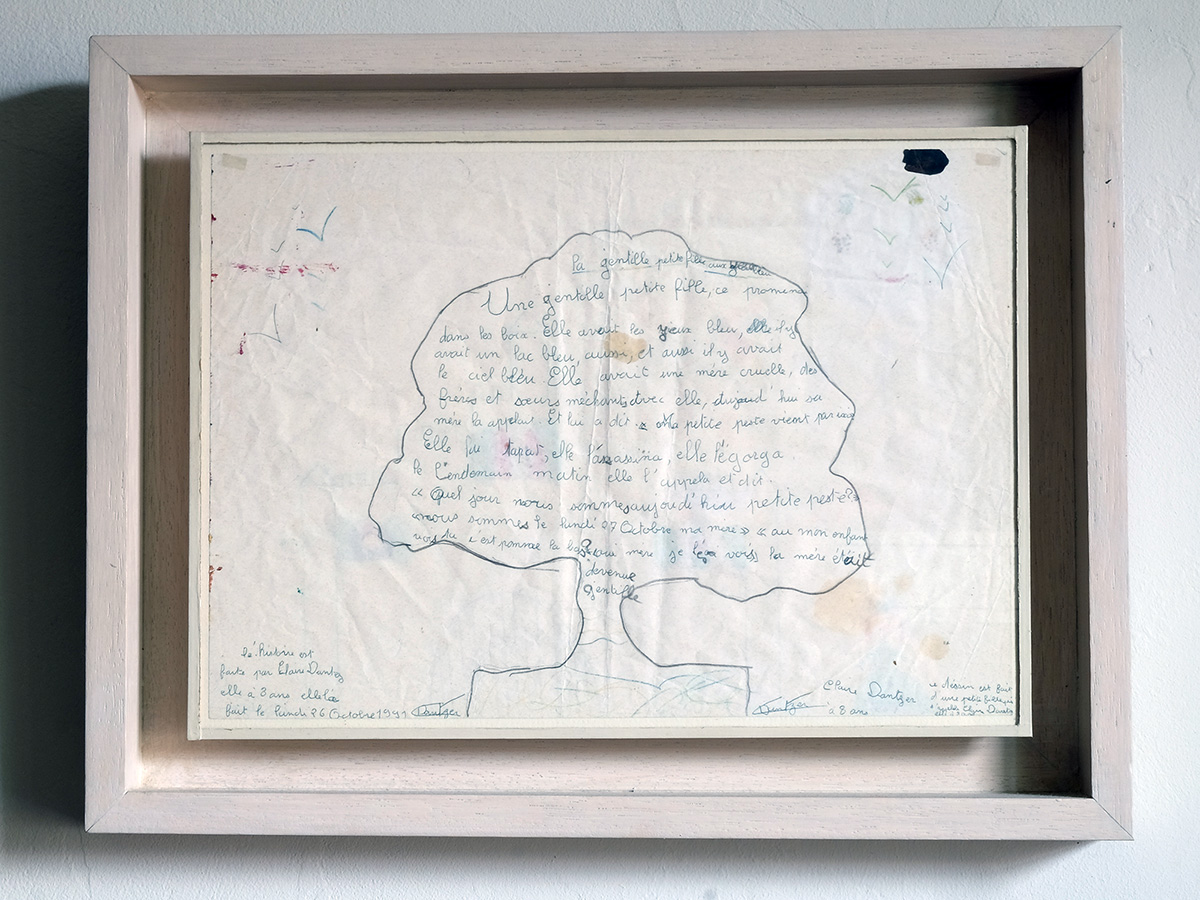 La gentille petite fille aux yeux bleu
Une gentille petite fille, ce promena
dans les bois. Elle avait les yeux bleu, elle il y
avait un lac bleu, aussi, et aussi il y avait
le ciel bleu. Elle avait une mère cruelle, des
frères et sœurs méchants avec elle, aujoud'hui sa
mère la appelait. Et lui a dit. « Ma petite peste vient par ici
Elle fu tapait, elle l'assasina, elle l'égorga.
le l'endemain matin elle l'appela et dit.
« Quel jour nous sommes aujoud'hui petite peste?»
«nous sommes le lundi 27 Octobre ma mère» « au mon enfant
vois tu c'est pomme la bas? oui mère je les vois» la mère était
devenue
gentille
lé'histoire est
faite par Claire Dantzer
elle à 8 ans elle l'a
fait le lundi 26 Octobre 1991 Dantzer
Dantzer
Claire Dantzer
à 8 ans
ce déssin est fait
d'une petite fille qui
s'appelle Claire Dantzer